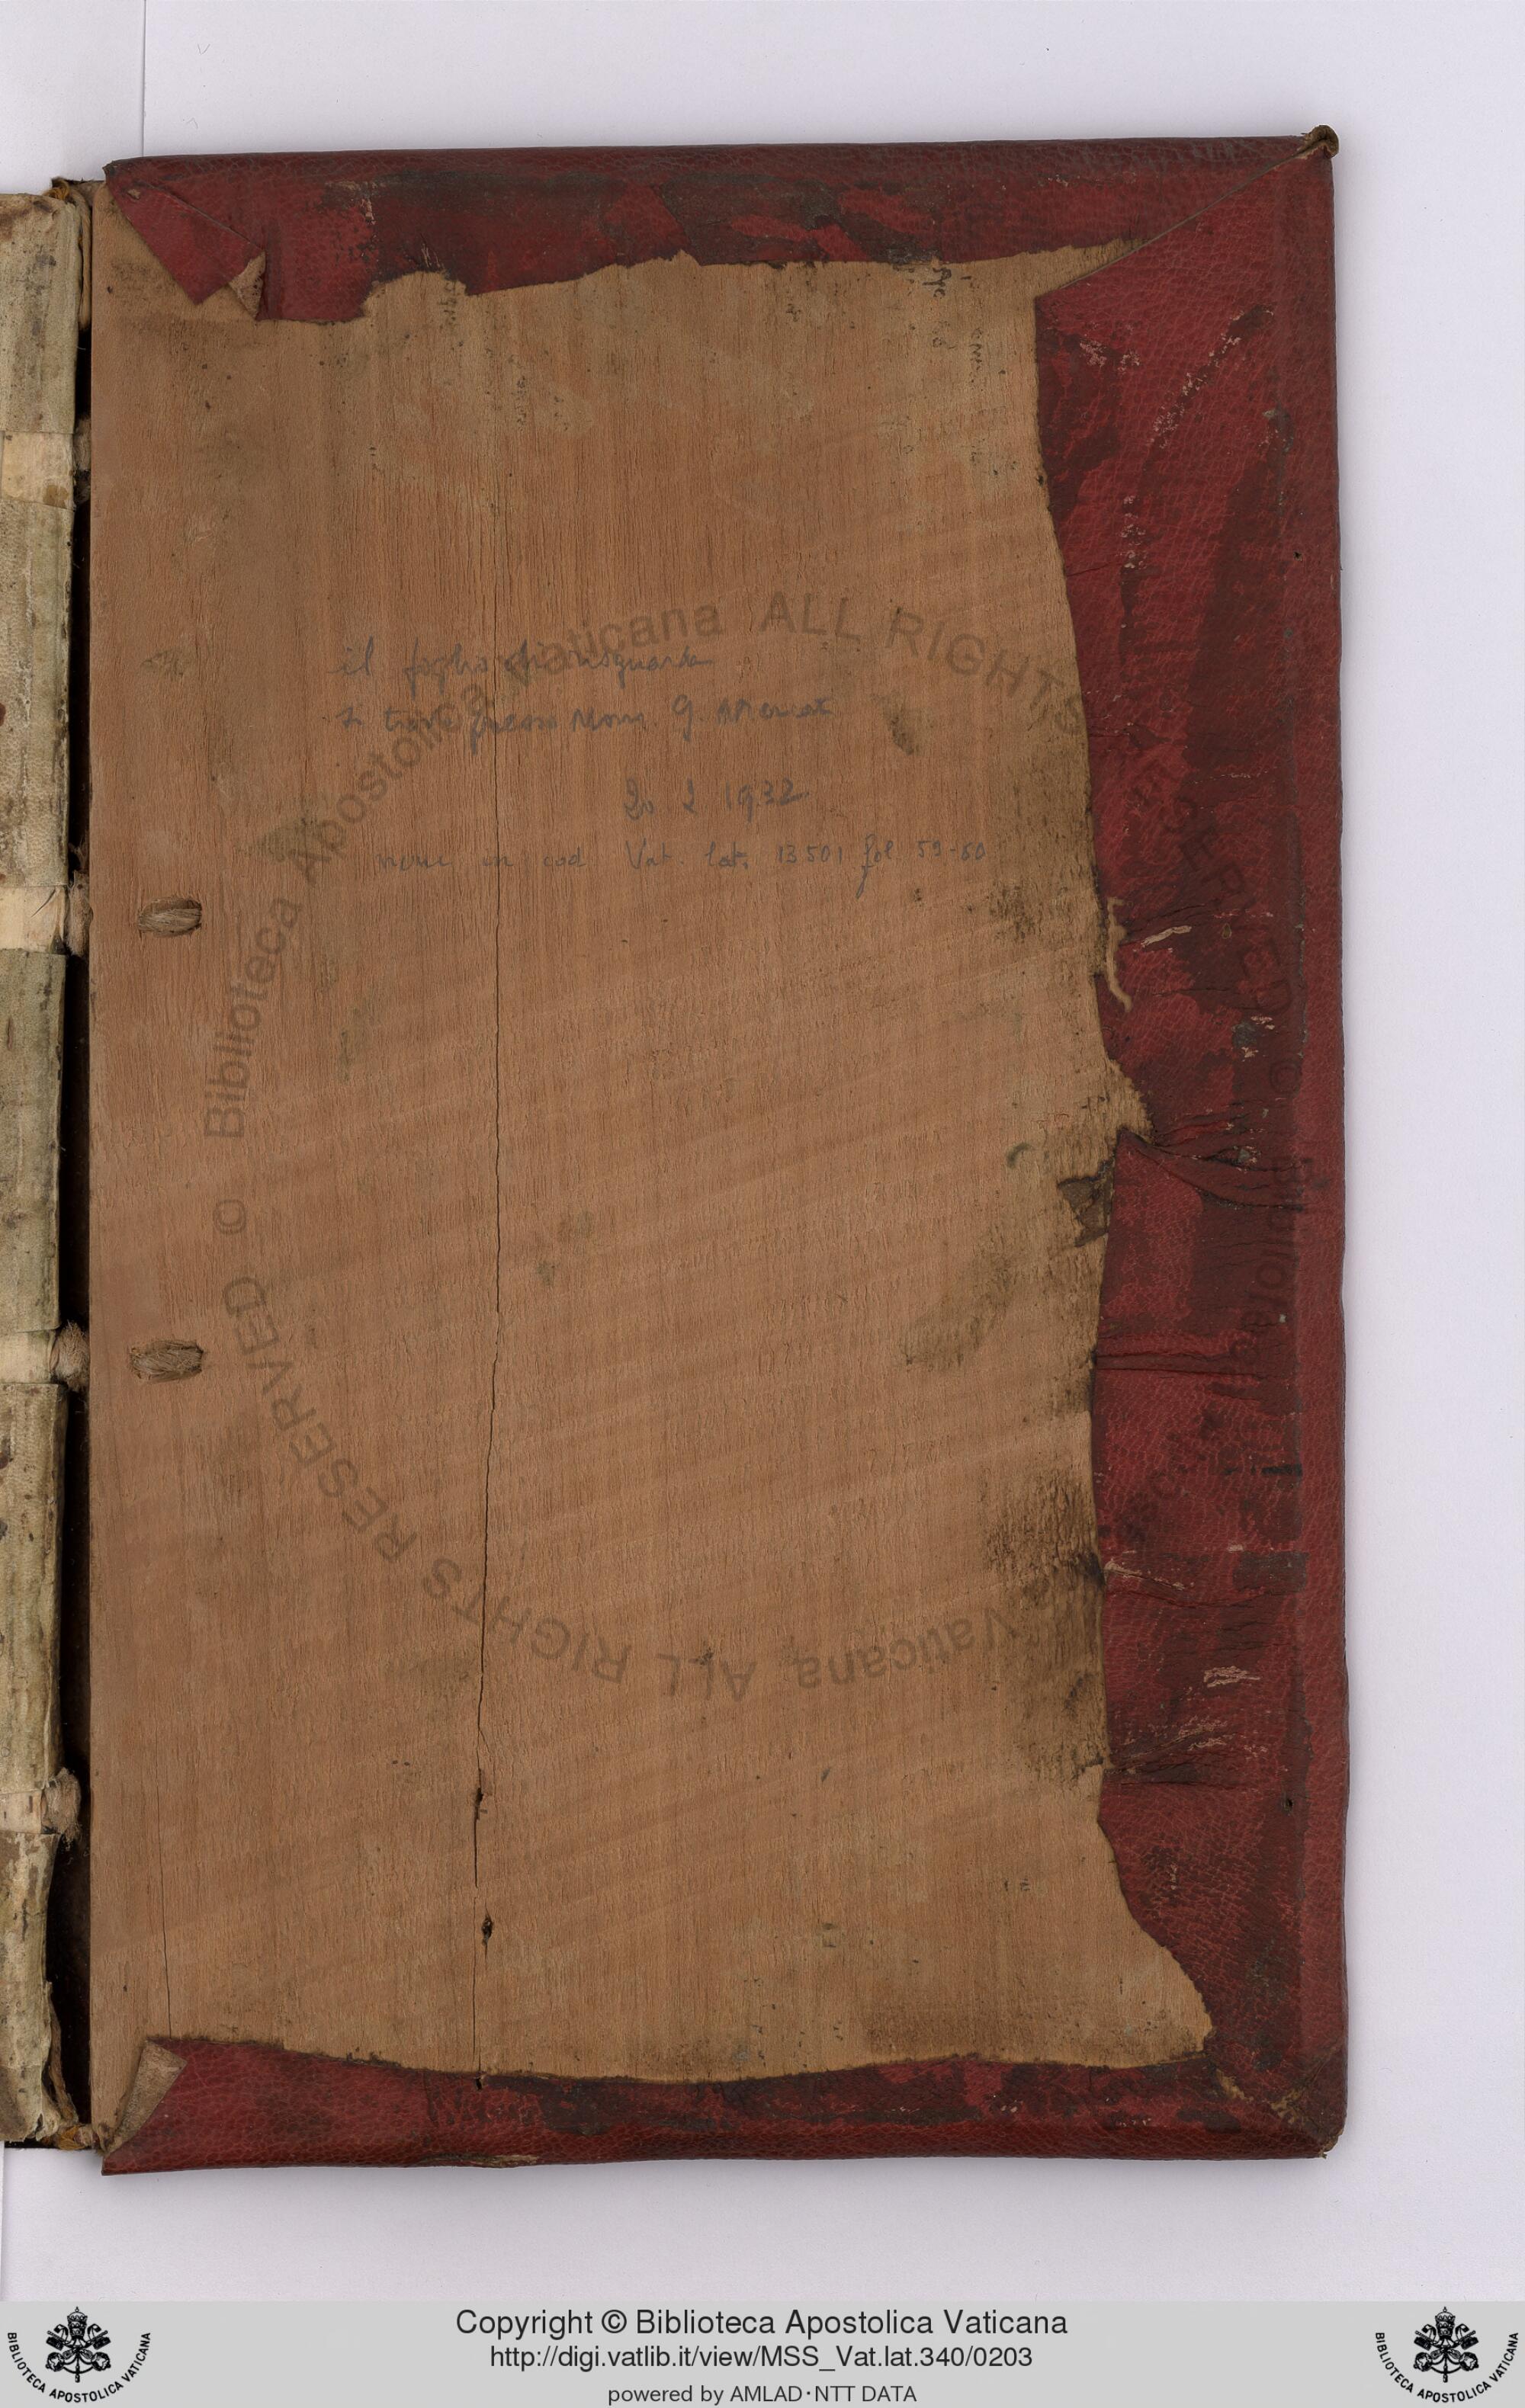 il foglio di risguardo
si trova presso Mons. G. Mercati
20 2 1932
nunc in cod Vat. lat. 13501 fol 59-60
© Biblioteca Apostolica Vaticana ALL RIGHTS RESERVED
© Biblioteca Apostolica Vaticana ALL RIGHTS RESERVED
Copyright © Biblioteca Apostolica Vaticana
http://digi.vatlib.it/view/MSS_Vat.lat.340/0203
powered by AMLAD·NTT DATA
BIBLIOTECA APOSTOLICA VATICANA
BIBLIOTECA APOSTOLICA VATICANA